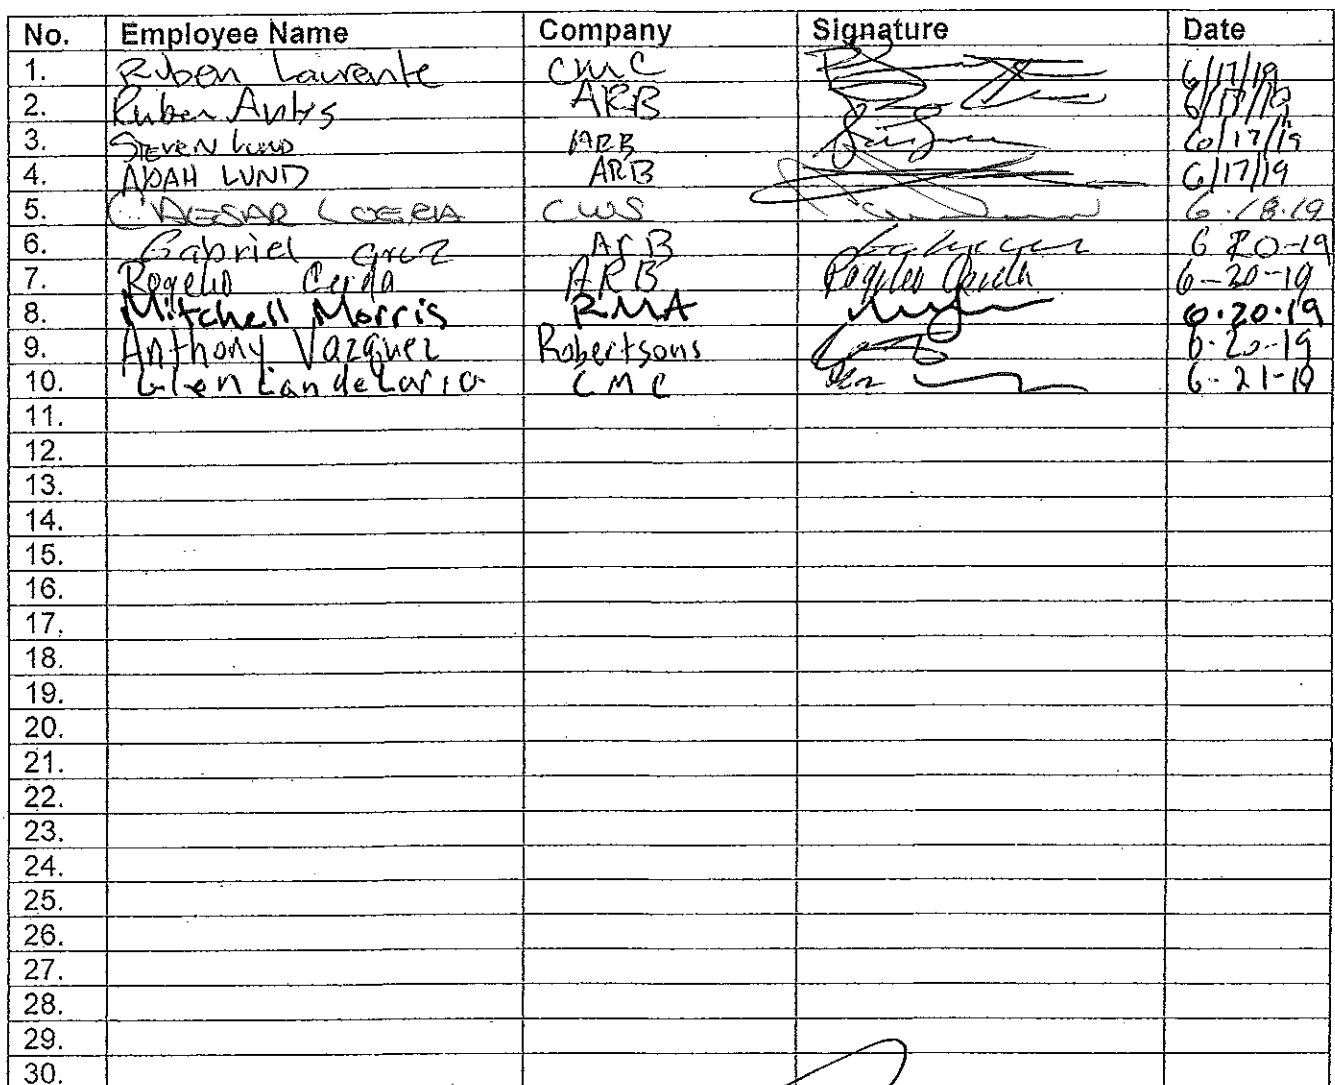 No. Employee Name Company Signature Date
1. Ruben Laurente CMC 6/17/19
2. Ruben ARB 6/17/19
3. Steven Lund ARB 6/17/19
4. NOAH LUND ARB 6/17/19
5. CAESAR LOERA CWS 6.18.19
6. Gabriel cruz ArB 6 20-19
7. Rogelio Cerda ARB Rogelio Cerda 6-20-19
8. Mitchell Morris RMA 6.20.19
9. Anthony Vazquez Robertsons 6-20-19
10. Glen Candelaria CMC 6-21-19
11.
12.
13.
14.
15.
16.
17.
18.
19.
20.
21.
22.
23.
24.
25.
26.
27.
28.
29.
30.